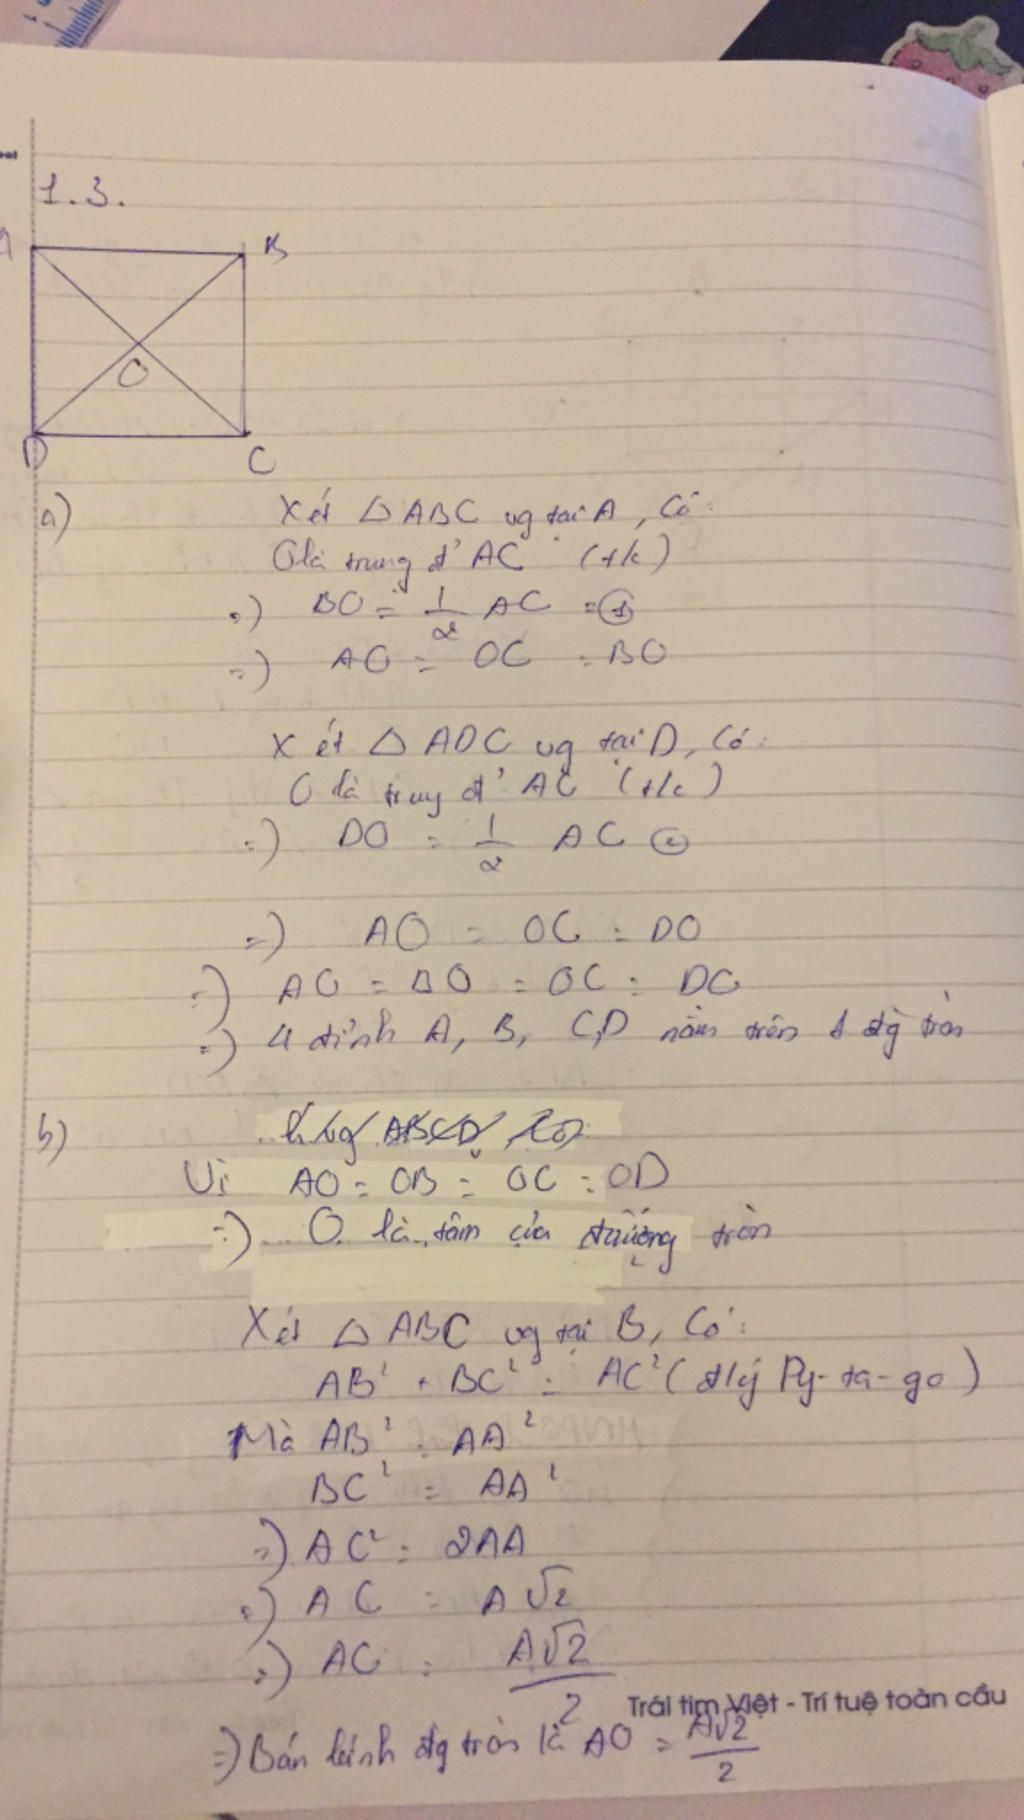 1.3.
A B
O
D C
a) Xét △ ABC vg tại A, Có:
O là trung đ' AC (t/c)
=) BO = 1/2 AC = ①
=) AO = OC = BO
Xét △ ADC vg tại D, Có:
O là trug đ' AC (t/c)
=) DO = 1/2 AC ②
=) AO = OC = DO
=) AO = BO = OC = DO
=) 4 đỉnh A, B, C, D nằm trên 1 đg tròn
b) ABCD, có:
Vì AO = OB = OC = OD
=) O là tâm của đường tròn
Xét △ ABC vg tại B, Có:
AB² + BC² = AC² (đlý Py-ta-go)
Mà AB² = AA²
BC² = AA²
=) AC² = 2AA
=) AC = A√2
=) AO = A√2/2
Trái tim Việt - Trí tuệ toàn cầu
=) Bán kính đg tròn là AO = A√2/2